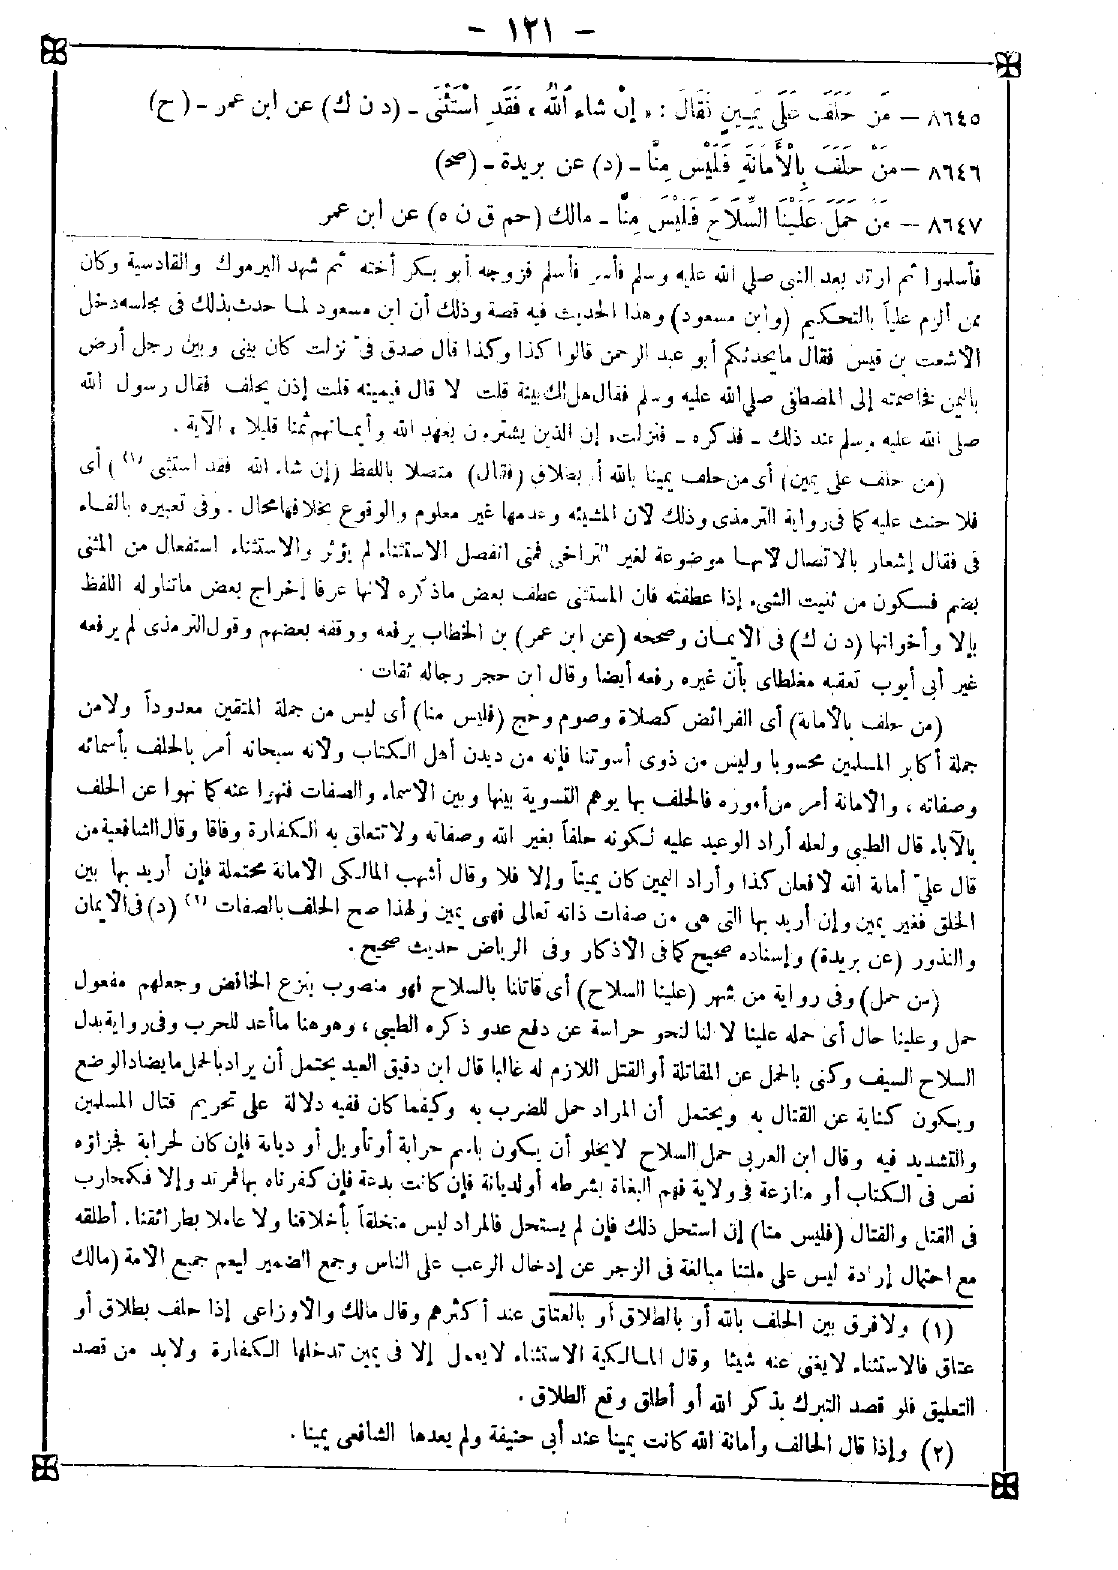 - ١٢١ -
٨٦٤٥ - مَنْ حَلَفَ عَلَى يَمِينٍ فَقَالَ: «إِنْ شَاءَ اللهُ» فَقَدِ اسْتَثْنَى - (د ن ك) عن ابن عمر - (ح)
٨٦٤٦ - مَنْ حَلَفَ بِالْأَمَانَةِ فَلَيْسَ مِنَّا - (د) عن بريدة - (صح)
٨٦٤٧ - مَنْ حَمَلَ عَلَيْنَا السِّلَاحَ فَلَيْسَ مِنَّا - مالك (حم ق ن ه) عن ابن عمر
فأسلموا ثم ارتد بعد النبي صلي الله عليه وسلم فأسر فأسلم فزوجه أبو بكر أخته ثم شهد اليرموك والقادسية وكان
ممن ألزم علياً بالتحكيم (وابن مسعود) وهذا الحديث فيه قصة وذلك أن ابن مسعود لما حدث بذلك فى مجلسه دخل
الأشعث بن قيس فقال مايحدثكم أبو عبد الرحمن قالوا كذا وكذا قال صدق فىّ نزلت كان بينى وبين رجل أرض
باليمن فخاصمته إلى المصطفى صلى الله عليه وسلم فقال هل لك بينة قلت لا قال فيمينه قلت إذن يحلف فقال رسول الله
صلى الله عليه وسلم عند ذلك - فذكره - فنزلت «إن الذين يشترون بعهد الله وأيمانهم ثمنا قليلا» الآية.
(من حلف على يمين) أى من حلف يمينا بالله أو بطلاق (فقال) متصلا باللفظ (إن شاء الله فقد استثنى (١)) أى
فلا حنث عليه كما فى رواية الترمذى وذلك لأن المشيئة وعدمها غير معلوم والوقوع بخلافها محال. وفى تعبيره بالفاء
فى فقال إشعار بالاتصال لأنها موضوعة لغير التراخى فمتى انفصل الاستثناء لم يؤثر والاستثناء استفعال من الثنى
بضم فسكون من ثنيت الشيء إذا عطفته فان المستثنى عطف بعض ماذكره لأنها عرفا إخراج بعض ماتناوله اللفظ
بإلا وأخواتها (د ن ك) فى الأيمان وصححه (عن ابن عمر) بن الخطاب يرفعه ووقفه بعضهم وقول الترمذى لم يرفعه
غير أبى أيوب تعقبه مغلطاى بأن غيره رفعه أيضا وقال ابن حجر رجاله ثقات.
(من حلف بالأمانة) أى الفرائض كصلاة وصوم وحج (فليس منا) أى ليس من جملة المتقين معدوداً ولا من
جملة أكابر المسلمين محسوبا وليس من ذوى أسوتنا فإنه من ديدن أهل الكتاب ولأنه سبحانه أمر بالحلف بأسمائه
وصفاته، والأمانة أمر من أموره فالحلف بها يوهم التسوية بينها وبين الأسماء والصفات فنهوا عنه كما نهوا عن الحلف
بالآباء قال الطيبى ولعله أراد الوعيد عليه لكونه حلفاً بغير الله وصفاته ولا تتعلق به الكفارة وفاقا وقال الشافعية من
قال علىّ أمانة الله لافعلن كذا وأراد اليمين كان يميناً وإلا فلا وقال أشهب المالكى الأمانة محتملة فإن أريد بها بين
الخلق فغير يمين وإن أريد بها التى هى من صفات ذاته تعالى فهى يمين ولهذا صح الحلف بالصفات (٢) (د) فى الأيمان
والنذور (عن بريدة) وإسناده صحيح كما فى الأذكار وفى الرياض حديث صحيح.
(من حمل) وفى رواية من شهر (علينا السلاح) أى قاتلنا بالسلاح فهو منصوب بنزع الخافض وجعلهم مفعول
حمل وعلينا حال أى حمله علينا لا لنا لنحو حراسة عن دفع عدو ذكره الطيبى، وهو هنا ما أعد للحرب وفى رواية بدل
السلاح السيف وكنى بالحمل عن المقاتلة أو القتل اللازم له غالبا قال ابن دقيق العيد يحتمل أن يراد بالحمل مايضاد الوضع
ويكون كناية عن القتال به ويحتمل أن المراد حمل للضرب به وكيفما كان ففيه دلالة على تحريم قتال المسلمين
والتشديد فيه وقال ابن العربى حمل السلاح لايخلو أن يكون باسم حرابة أو تأويل أو ديانة فإن كان لحرابة فجزاؤه
نص فى الكتاب أو منازعة فى ولاية فهم البغاة بشرطه أو لديانة فإن كانت بدعة فإن كفرناه بها فمرتد وإلا فكمحارب
فى القتل والقتال (فليس منا) إن استحل ذلك فإن لم يستحل فالمراد ليس متخلقاً بأخلاقنا ولا عاملا بطرائقنا. أطلقه
مع احتمال إرادة ليس على ملتنا مبالغة فى الزجر عن إدخال الرعب على الناس وجمع الضمير ليعم جميع الأمة (مالك
(١) ولافرق بين الحلف بالله أو بالطلاق أو بالعتاق عند أكثرهم وقال مالك والأوزاعى إذا حلف بطلاق أو
عتاق فالاستثناء لايغنى عنه شيئا وقال المالكية الاستثناء لايعمل إلا فى يمين تدخلها الكفارة ولابد من قصد
التعليق فلو قصد التبرك بذكر الله أو أطلق وقع الطلاق.
(٢) وإذا قال الحالف وأمانة الله كانت يمينا عند أبى حنيفة ولم يعدها الشافعى يمينا.